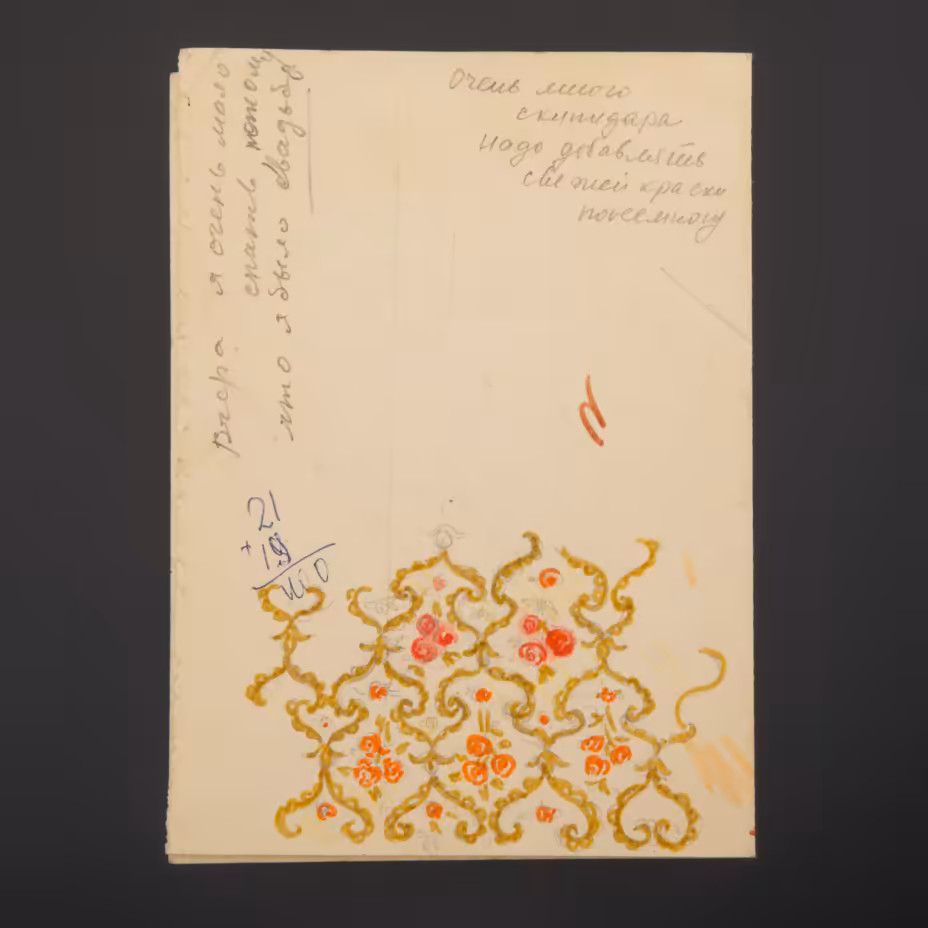 Очень много
скипидара
надо добавлять
свежей краски
понемногу
Вчера я очень мало
спать потому
что я было свадьбу
21
+
19
40